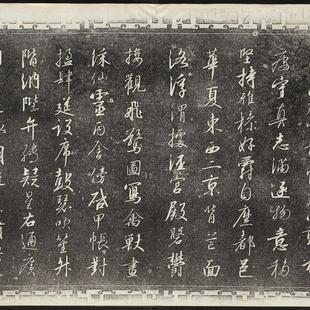 疲守真志滿逐物意移
堅持雅操好爵自縻都邑
華夏東西二京背芒面
洛浮渭據涇宮殿盤鬱
樓觀飛驚圖寫禽獸畫
綵仙靈丙舍傍啟甲帳對
楹肆筵設席鼓瑟吹笙升
階納陛弁轉疑星右通廣